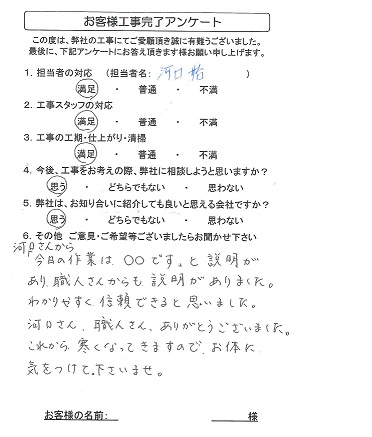 お客様工事完了アンケート
この度は、弊社の工事にてご愛顧頂き誠に有難うございました。
最後に、下記アンケートにお答え頂きます様お願い申し上げます。
1. 担当者の対応 (担当者名: 河口 )
満足 ・ 普通 ・ 不満
2. 工事スタッフの対応
満足 ・ 普通 ・ 不満
3. 工事の工期・仕上がり・清掃
満足 ・ 普通 ・ 不満
4. 今後、工事をお考えの際、弊社に相談しようと思いますか?
思う ・ どちらでもない ・ 思わない
5. 弊社は、お知り合いに紹介しても良いと思える会社ですか?
思う ・ どちらでもない ・ 思わない
6. その他 ご意見・ご希望等ございましたらお聞かせ下さい
河口さんから
「今日の作業は 〇〇です。」と説明が
あり、職人さんからも説明がありました。
わかりやすく信頼できると思いました。
河口さん、職人さん、ありがとうございました。
これから寒くなってきますので、お体に
気をつけて下さいませ。
お客様の名前: 様